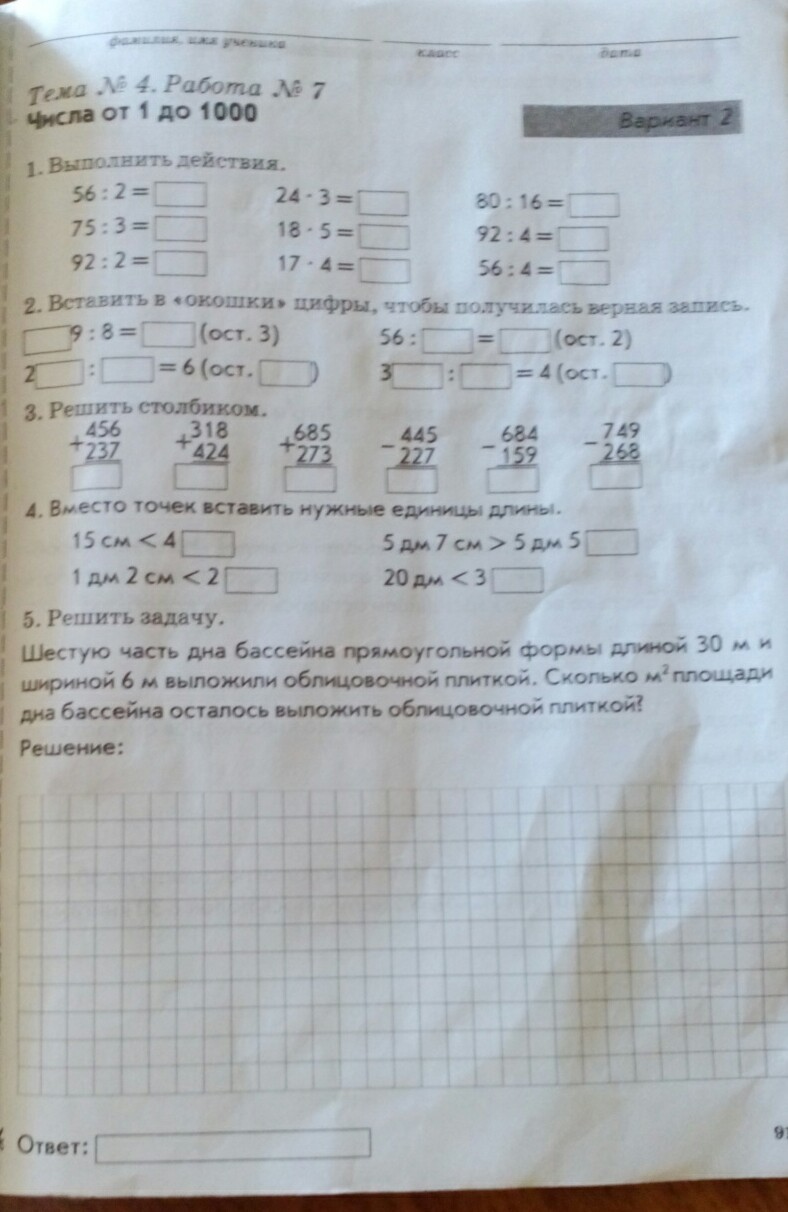 фамилия, имя ученика класс дата
Тема № 4. Работа № 7
Числа от 1 до 1000
Вариант 2
1. Выполнить действия.
56 : 2 = 24 · 3 = 80 : 16 =
75 : 3 = 18 · 5 = 92 : 4 =
92 : 2 = 17 · 4 = 56 : 4 =
2. Вставить в «окошки» цифры, чтобы получилась верная запись.
9 : 8 = (ост. 3) 56 : = (ост. 2)
2 : = 6 (ост. ) 3 : = 4 (ост. )
3. Решить столбиком.
456 318 685 445 684 749
+ + + − − −
237 424 273 227 159 268
4. Вместо точек вставить нужные единицы длины.
15 см < 4 5 дм 7 см > 5 дм 5
1 дм 2 см < 2 20 дм < 3
5. Решить задачу.
Шестую часть дна бассейна прямоугольной формы длиной 30 м и
шириной 6 м выложили облицовочной плиткой. Сколько м² площади
дна бассейна осталось выложить облицовочной плиткой?
Решение:
Ответ: